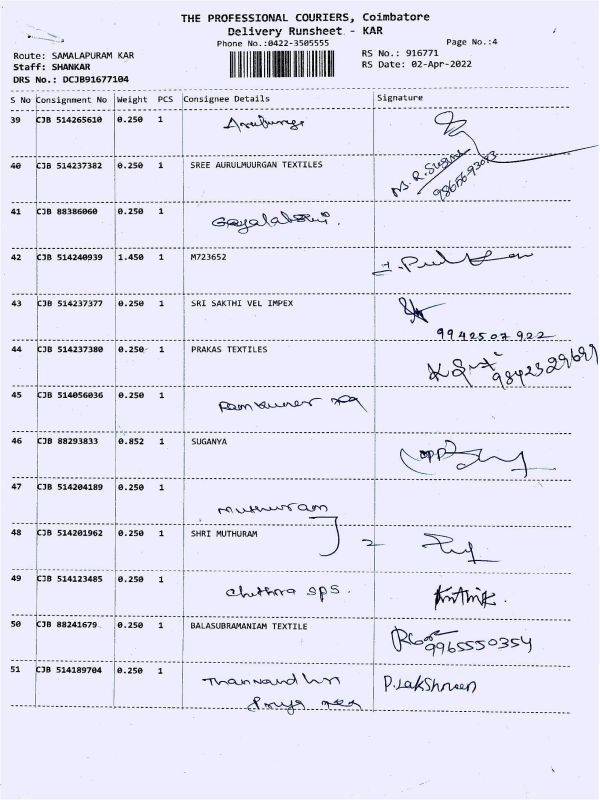 THE PROFESSIONAL COURIERS, Coimbatore
Delivery Runsheet - KAR
Phone No.:0422-3505555
Page No.:4
Route: SAMALAPURAM KAR
RS No.: 916771
Staff: SHANKAR
RS Date: 02-Apr-2022
DRS No.: DCJB91677104
S No Consignment No Weight PCS Consignee Details Signature
39 CJB 514265610 0.250 1
40 CJB 514237382 0.250 1 SREE AURULMUURGAN TEXTILES
41 CJB 88386060 0.250 1
42 CJB 514240939 1.450 1 M723652
43 CJB 514237377 0.250 1 SRI SAKTHI VEL IMPEX
9942507922
44 CJB 514237380 0.250 1 PRAKAS TEXTILES
9842329699
45 CJB 514056036 0.250 1
Ramkumar
46 CJB 88293833 0.852 1 SUGANYA
47 CJB 514204189 0.250 1
Muthuram
48 CJB 514201962 0.250 1 SHRI MUTHURAM
49 CJB 514123485 0.250 1
Chithra sps. Karthik.
50 CJB 88241679 0.250 1 BALASUBRAMANIAM TEXTILE
9965550354
51 CJB 514189704 0.250 1
Priya